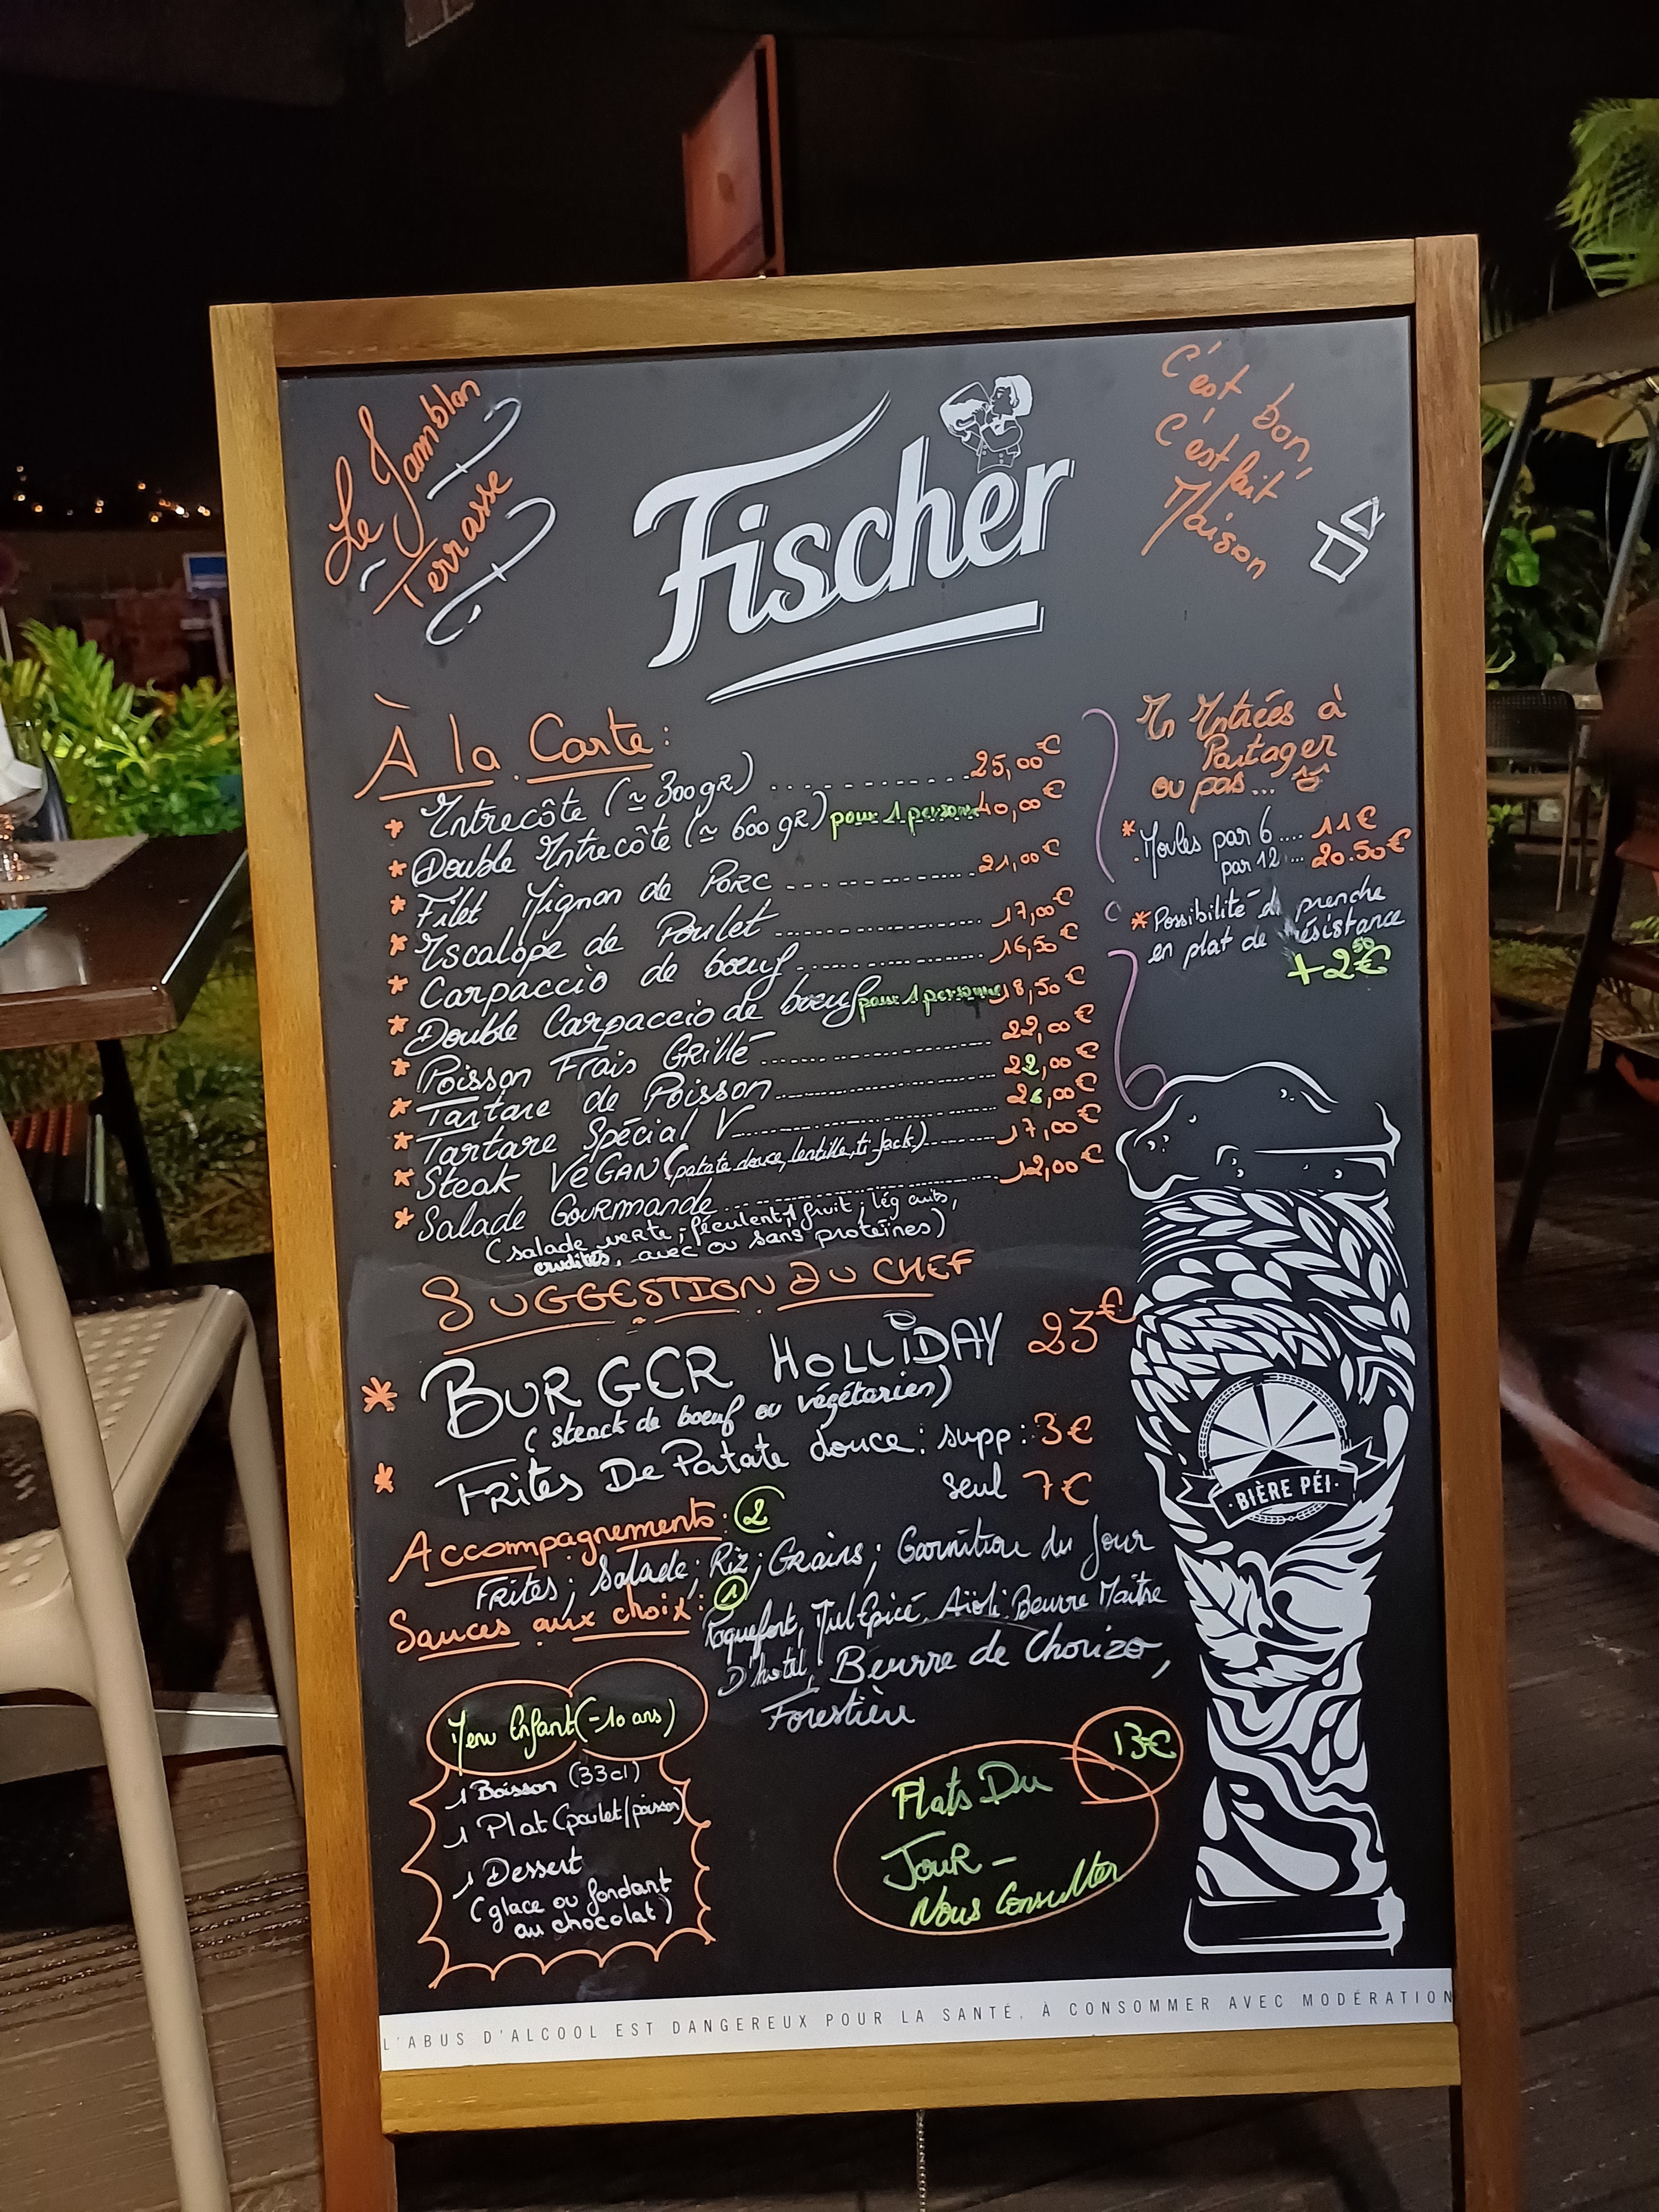 Le Jamblon
Terrasse
Fischer
C'est bon,
C'est fait
Maison
À la Carte:
* Entrecôte (≃ 300gR) 25,00€
* Double Entrecôte (≃ 600 gR) pour 1 personne 40,00€
* Filet Mignon de Porc 21,00€
* Escalope de Poulet 17,00€
* Carpaccio de bœuf 16,50€
* Double Carpaccio de bœuf pour 1 personne 18,50€
* Poisson Frais Grillé 22,00€
* Tartare de Poisson 22,00€
* Tartare Spécial V 26,00€
* Steak VÉGAN (patate douce, lentille, ti Jack) 17,00€
* Salade Gourmande 12,00€
(salade verte, féculent, 1 fruit, lég cuits,
crudités, avec ou sans protéines)
En Entrées à
Partager
ou pas...
* Moules par 6 .... 11€
par 12 ... 20.50€
* Possibilité de prendre
en plat de résistance
+2€50
SUGGESTION DU CHEF
* BURGER HOLLIDAY 23€
(steack de bœuf ou végétarien)
* FRites De Patate douce: supp: 3€
seul 7€
Accompagnements: 2
FRites; Salade; Riz; Grains; Garnition du Jour
Sauces aux choix: 1
Roquefort, Miel Epicé, Aïoli, Beurre Maitre
D'hotel, Beurre de Chorizo,
Forestière
Menu Enfant (-10 ans)
1 Boisson (33cl)
1 Plat (poulet/poisson)
1 Dessert
(glace ou fondant
au chocolat)
13€
Plats Du
JOUR -
Nous Consulter
·BIÈRE PÉI·
L'ABUS D'ALCOOL EST DANGEREUX POUR LA SANTÉ, À CONSOMMER AVEC MODÉRATION